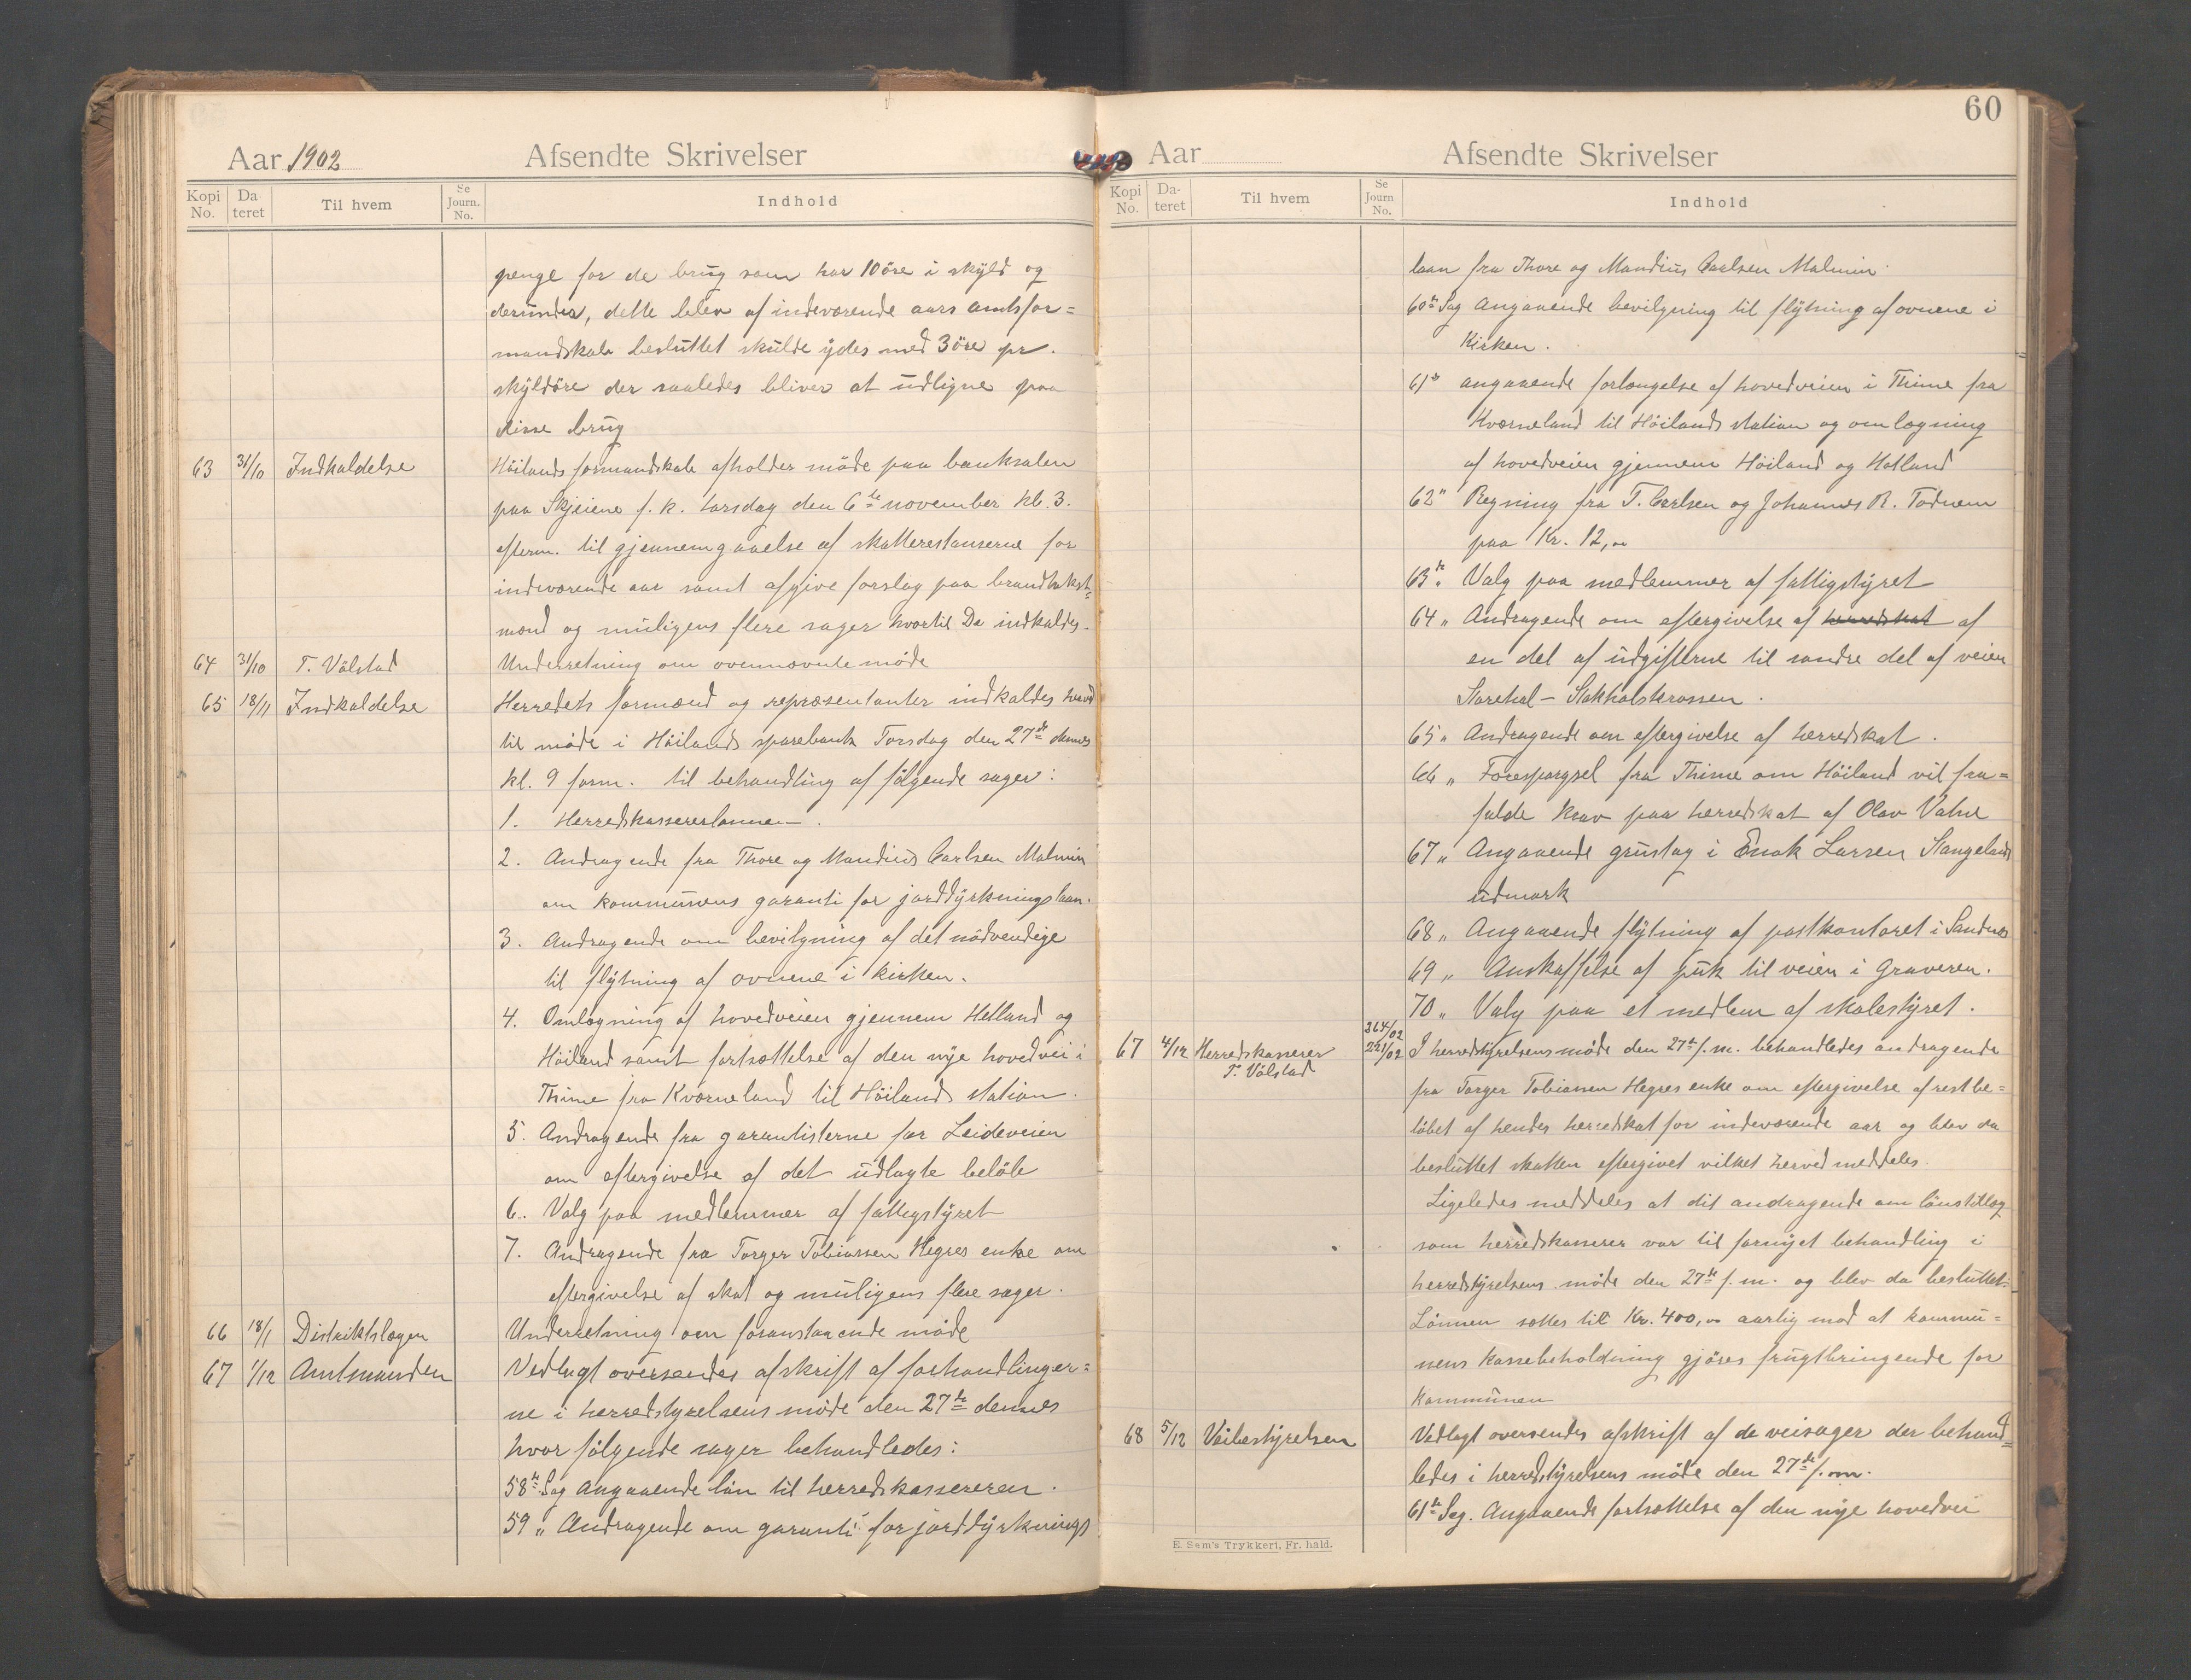 Aar 1902 Afsendte Skrivelser
Kopi No. Da teret Til hvem Se Journ. No. Indhold
penge for de brug som har 10 öre i skyld og
derunder, dette blev af indeværende aars amtsfor=
mandskab besluttet skulde ydes med 3 öre pr.
skyldöre der saaledes bliver at udligne paa
disse brug
63 31/10 Indkaldelse Höilands formandskab afholder möde paa banksalen
paa Skjeiene f. k. torsdag den 6te november kl. 3.
efterm. til gjennemgaaelse af skatterestanserne for
indeværende aar samt afgive forslag paa brandtakst=
mænd og muligens flere sager hvortil De indkaldes.
64 31/10 T. Válstad Underretning om ovennævnte möde
65 18/11 Indkaldelse Herredets formænd og repræsentanter indkaldes herved
til möde i Höilands sparebank Torsdag den 27de dennes
kl. 9 form. til behandling af fölgende sager:
1. Herredskassererlönnen.
2. Andragende fra Thore og Mandius Carlsen Malmin
om kommunens garanti for jorddyrkningslaan.
3. Andragende om bevilgning af det nödvendige
til flytning af ovnene i kirken.
4. Omlægning af hovedveien gjennem Helland og
Höiland samt fortsættelse af den nye hovedvei i
Thime fra Kværneland til Höilands station.
5. Andragende fra garantisterne for Leideveien
om eftergivelse af det udlagte belöb
6. Valg paa medlemmer af fattigstyret
7. Andragende fra Torger Tobiassen Hegres enke om
eftergivelse af skat og muligens flere sager.
66 18/1 Distriktslægen Underretning om foranstaaende möde
67 1/12 Amtmanden Vedlagt oversendes afskrift af forhandlinger=
ne i herredstyrelsens möde den 27de dennes
hvor fölgende sager behandledes:
58de Sag Angaaende lön til herredskassereren.
59 " Andragende om garanti for jorddyrknings
60
Aar Afsendte Skrivelser
Kopi No. Da- teret Til hvem Se Journ No. Indhold
laan fra Thore og Mandius Carlsen Malmin
60de Sag Angaaende bevilgning til flytning af ovnene i
Kirken.
61de angaaende forlængelse af hovedveien i Thime fra
Kværneland til Höilands station og omlægning
af hovedveien gjennem Höiland og Helland
62 " Regning fra T. Carlsen og Johannes R. Todnem
paa Kr. 12,00
63de Valg paa medlemmer af fattigstyret
64 " Andragende om eftergivelse af herredskat af
en del af udgifterne til söndre del af veien
Starehul – Stokholskrossen.
65 " Andragende om eftergivelse af herredskat.
66 " Forespörgsel fra Thime om Höiland vil fra=
falde krav paa herredskat af Olav Vatne
67 " Angaaende grustag i Enok Larsen Stangelands
udmark
68 " Angaaende flytning af postkontoret i Sandnes
69 " Anskaffelse af puk til veien i Graveren.
70 " Valg paa et medlem af skolestyret.
67 4/12 Herredskasserer T. Válstad 364/02 221/02 I herredstyrelsens möde den 27de f. m. behandledes andragende
fra Torger Tobiassen Hegres enke om eftergivelse af restbe=
löbet af hendes herredskat for indeværende aar og blev da
besluttet skatten eftergivet vilket herved meddeles.
Ligeledes meddeles at dit andragende om lönstillæg
som herredskasserer var til fornyet behandling i
herredstyrelsens möde den 27de f. m. og blev da besluttet:
Lönnen sættes til Kr. 400,00 aarlig mod at kommu=
nens kassebeholdning gjöres frugtbringende for
kommunen
68 5/12 Veibestyrelsen Vedlagt oversendes afskrift af de veisager der behand=
ledes i herredstyrelsens möde den 27de f. m.
61de Sag. Angaaende fortsættelse af den nye hovedvei
E. Sem's Trykkeri, Fr. hald.